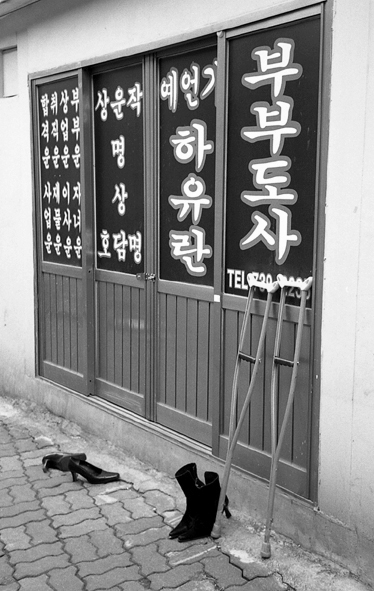 합격운
취직운
상업운
부부운
사업운
재물운
이사운
자녀운
상호
운명상담
작명
예언가
하유란
부부도사
TEL